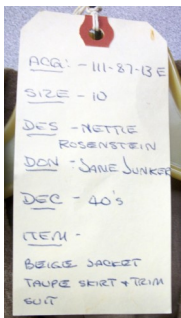 ACG: - 111-87-13 E
SIZE - 10
DES - NETTIE
ROSENSTEIN
DON - JANE JUNKER
DEC - 40's
ITEM -
BEIGE JACKET
TAUPE SKIRT + TRIM
SUIT